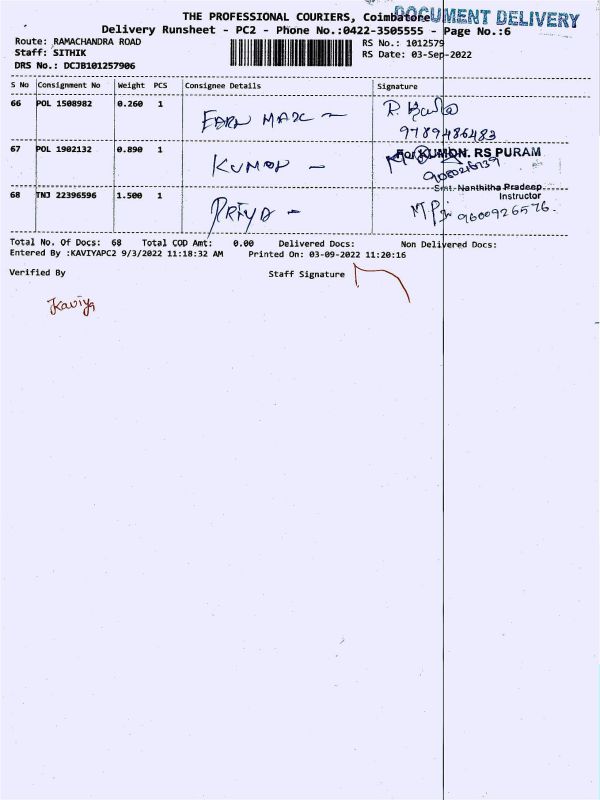 THE PROFESSIONAL COURIERS, Coimbatore DOCUMENT DELIVERY
Delivery Runsheet - PC2 - Phone No.:0422-3505555 - Page No.:6
Route: RAMACHANDRA ROAD RS No.: 1012579
Staff: SITHIK RS Date: 03-Sep-2022
DRS No.: DCJB101257906
S No Consignment No Weight PCS Consignee Details Signature
66 POL 1508982 0.260 1
9789486483
67 POL 1902132 0.890 1 KUMON - For KUMON. RS PURAM
Smt. Nanthitha Pradeep
Instructor
68 TNJ 22396596 1.500 1 PRIYA - 9600926576.
Total No. Of Docs: 68 Total COD Amt: 0.00 Delivered Docs: Non Delivered Docs:
Entered By :KAVIYAPC2 9/3/2022 11:18:32 AM Printed On: 03-09-2022 11:20:16
Verified By Staff Signature
Kaviya